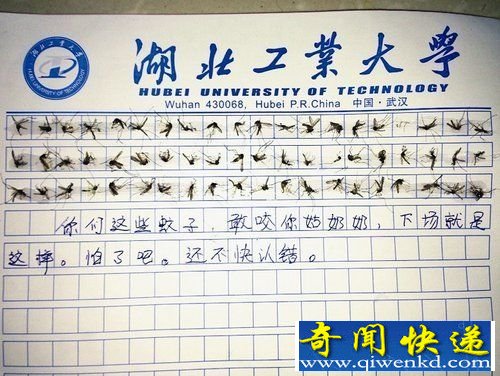 湖北工業大學
HUBEI UNIVERSITY OF TECHNOLOGY
Wuhan 430068, Hubei P.R.China 中国·武汉
你们这些蚊子，敢咬你姑奶奶，下场就是
这样。怕了吧。还不快认错。
奇闻快递
www.qiwenkd.com